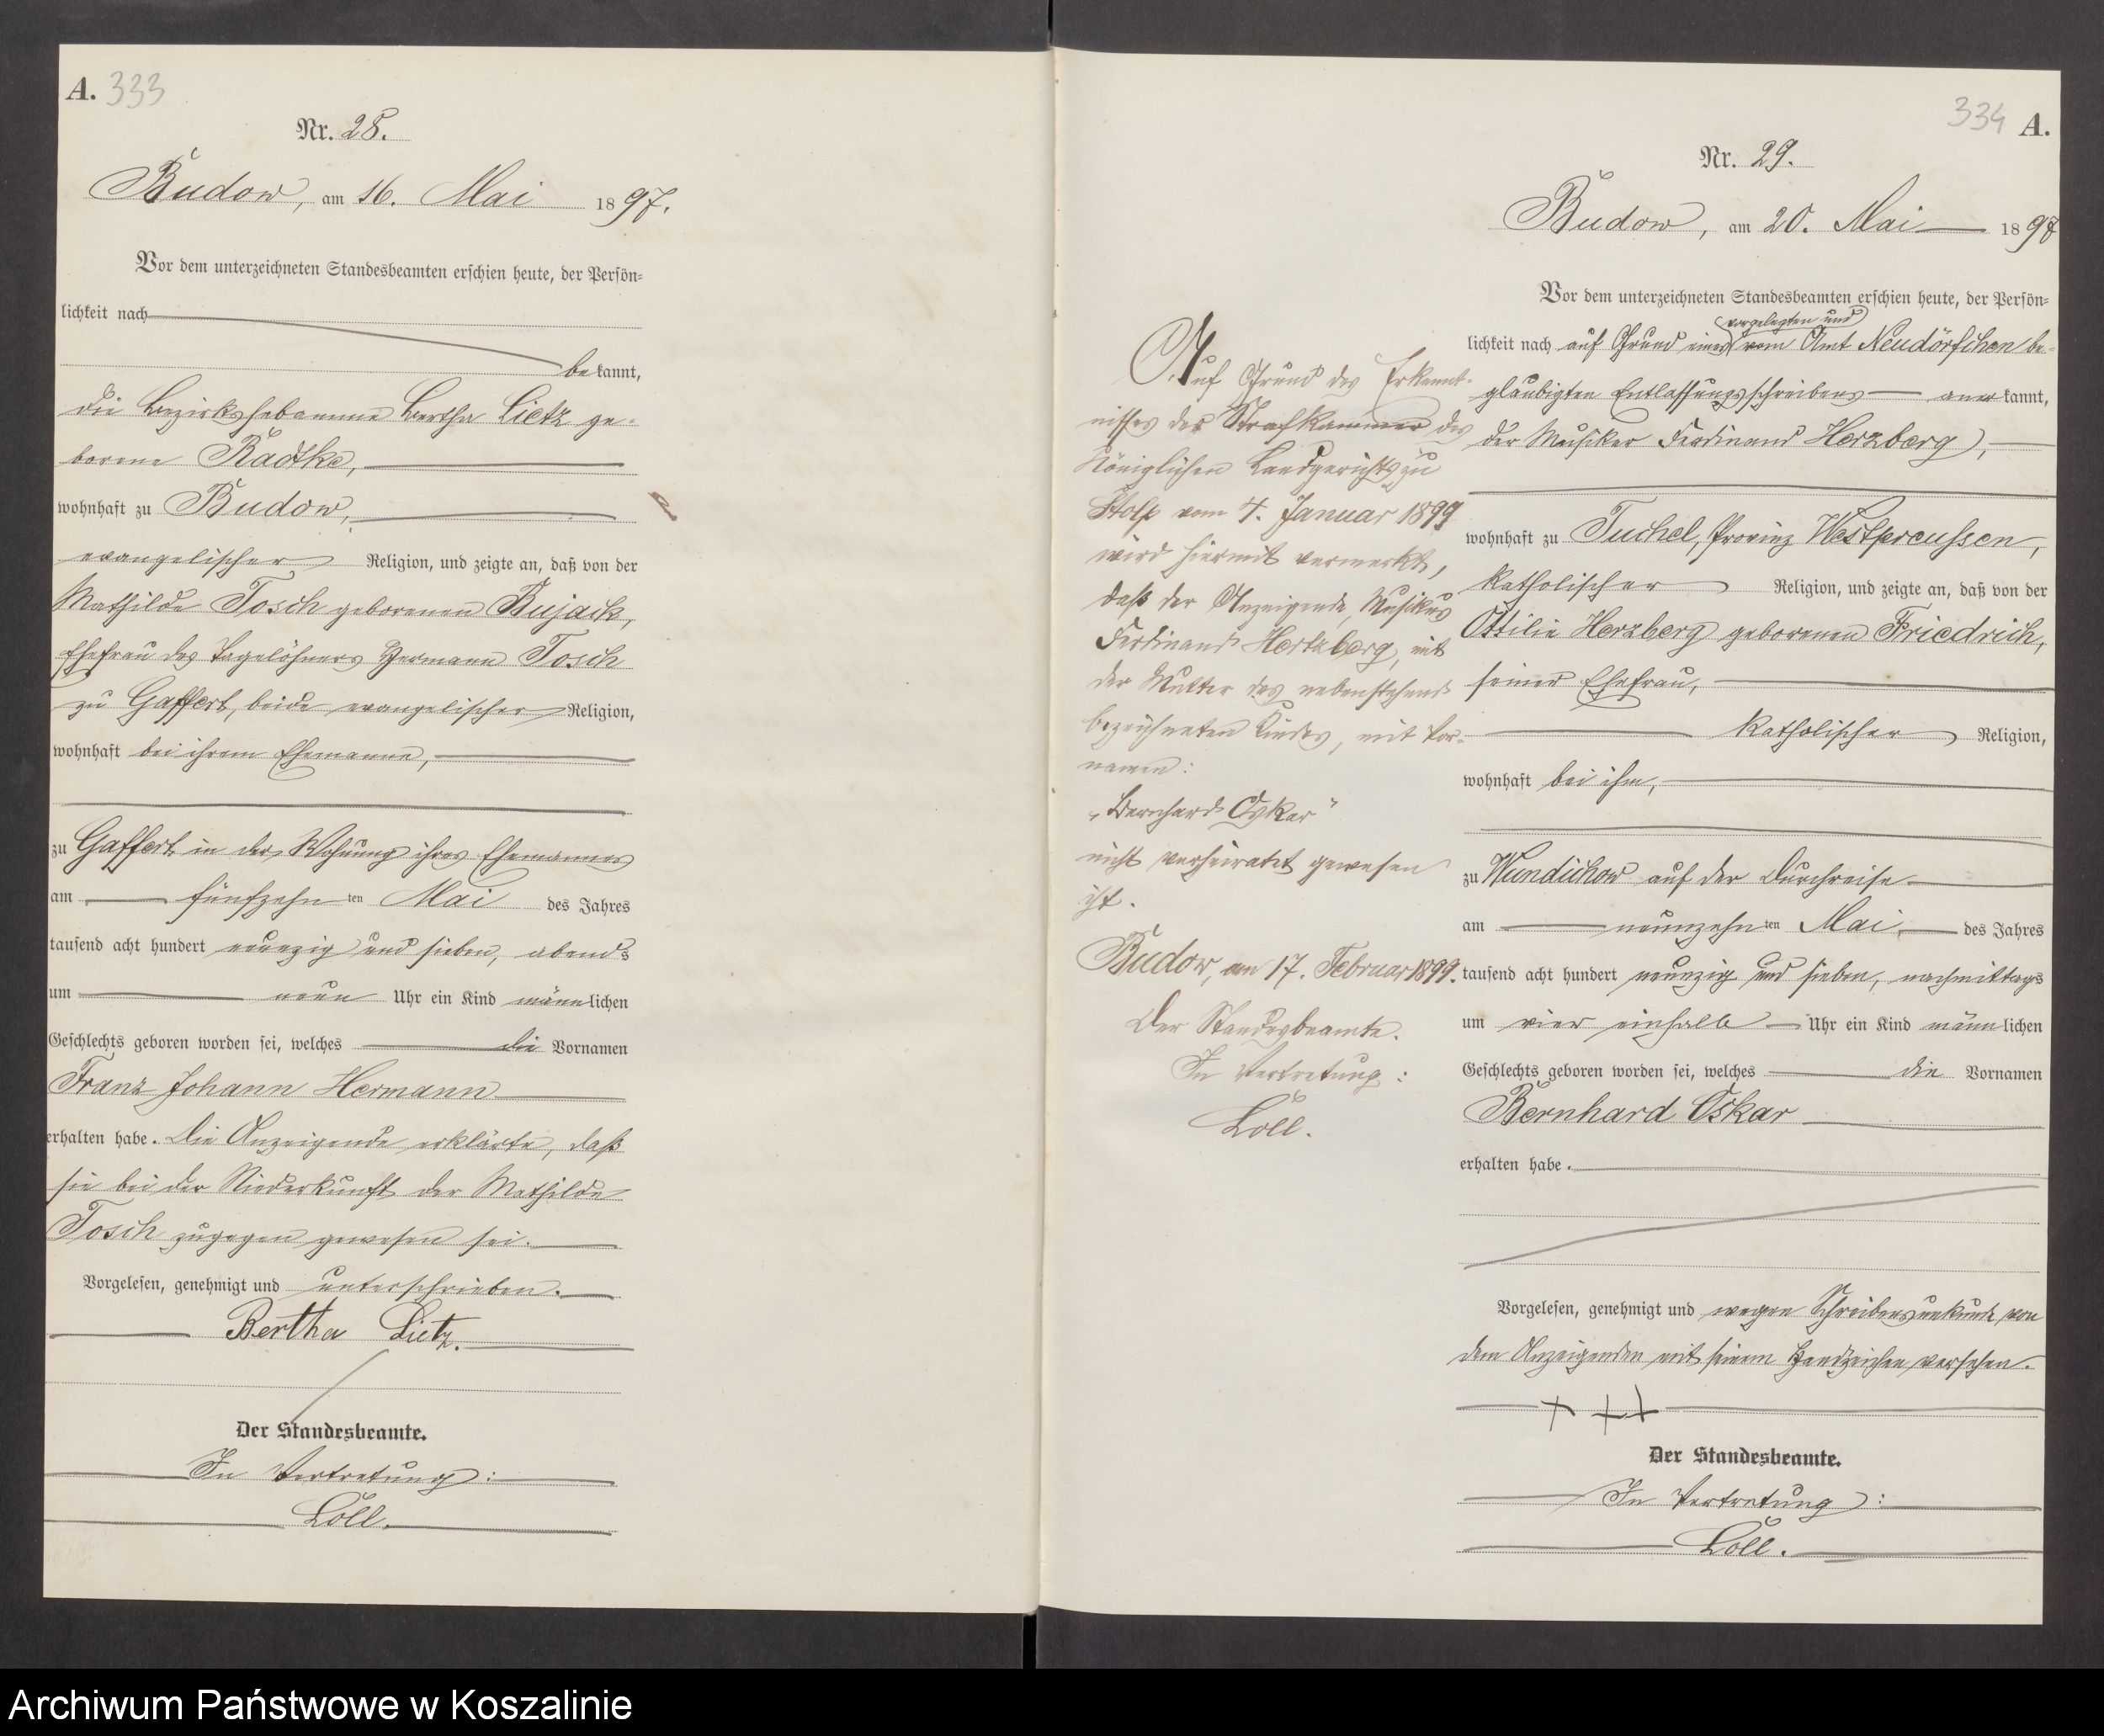 A. 333
Nr. 28.
Budow, am 16. Mai 1897.
Vor dem unterzeichneten Standesbeamten erschien heute, der Persön-
lichkeit nach
bekannt,
die Bezirkshebamme Bertha Lietz ge-
borene Radtke,
wohnhaft zu Budow,
evangelischer Religion, und zeigte an, daß von der
Mathilde Tosch geborenen Bujack,
Ehefrau des Tagelöhners Hermann Tosch
zu Gaffert, beide evangelischer Religion,
wohnhaft bei ihrem Ehemanne,
zu Gaffert in der Wohnung ihres Ehemannes
am fünfzehnten Mai des Jahres
tausend acht hundert neunzig und sieben, abends
um neun Uhr ein Kind männlichen
Geschlechts geboren worden sei, welches die Vornamen
Franz Johann Hermann
erhalten habe. Die Anzeigende erklärte, daß
sie bei der Niederkunft der Mathilde
Tosch zugegen gewesen sei.
Vorgelesen, genehmigt und unterschrieben.
Bertha Lietz.
Der Standesbeamte.
In Vertretung:
Löll.
334 A.
Nr. 29.
Budow, am 20. Mai 1897
Vor dem unterzeichneten Standesbeamten erschien heute, der Persön-
vorgelegten und
lichkeit nach auf Grund eines vom Amt Neudörfchen be-
glaubigten Entlassungsschreibens anerkannt,
der Musiker Ferdinand Herzberg,
wohnhaft zu Tuchel, Provinz Westpreussen,
katholischer Religion, und zeigte an, daß von der
Ottilie Herzberg geborenen Friedrich,
seiner Ehefrau,
katholischer Religion,
wohnhaft bei ihm,
zu Wundichow auf der Durchreise
am neunzehnten Mai des Jahres
tausend acht hundert neunzig und sieben, nachmittags
um vier einhalb Uhr ein Kind männlichen
Geschlechts geboren worden sei, welches die Vornamen
Bernhard Oskar
erhalten habe.
Vorgelesen, genehmigt und wegen Schreibensunkunde von
dem Anzeigenden mit seinem Handzeichen versehen.
+ ++
Der Standesbeamte.
In Vertretung:
Löll.
Auf Grund des Erkennt-
nisses der Strafkammer des
Königlichen Landgerichts zu
Stolp vom 7. Januar 1899
wird hiermit vermerkt,
daß der Anzeigende, Musikus
Ferdinand Hertzberg, mit
der Mutter des nebenstehend
bezeichneten Kindes, mit Vor-
namen:
„Bernhard Oskar"
nicht verheiratet gewesen
ist.
Budow, am 17. Februar 1899.
Der Standesbeamte.
In Vertretung:
Löll.
Archiwum Państwowe w Koszalinie